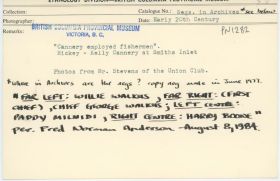 ETHNOLOGY DIVISION—BRITISH COLUMBIA PROVINCIAL MUSEUM
Collection: Catalogue No.: Negs. in Archives *see below
Photographer: Date: Early 20th Century
Remarks: BRITISH COLUMBIA PROVINCIAL MUSEUM PN1282
VICTORIA, B.C.
"Cannery employed fishermen".
Hickey - Kelly Cannery at Smiths Inlet
Photos from Mr. Stevens of the Union Club.
*Where in Archives are the negs? copy neg made in June 1977.
"FAR LEFT: WILLIE WALKUS, FAR RIGHT: (FIRST
CHEF), CHIEF GEORGE WALKUS; LEFT CENTRE:
PADDY MCINDID, RIGHT CENTRE: HARRY BOONE"
per. Fred Norman Anderson - August 8, 1984.